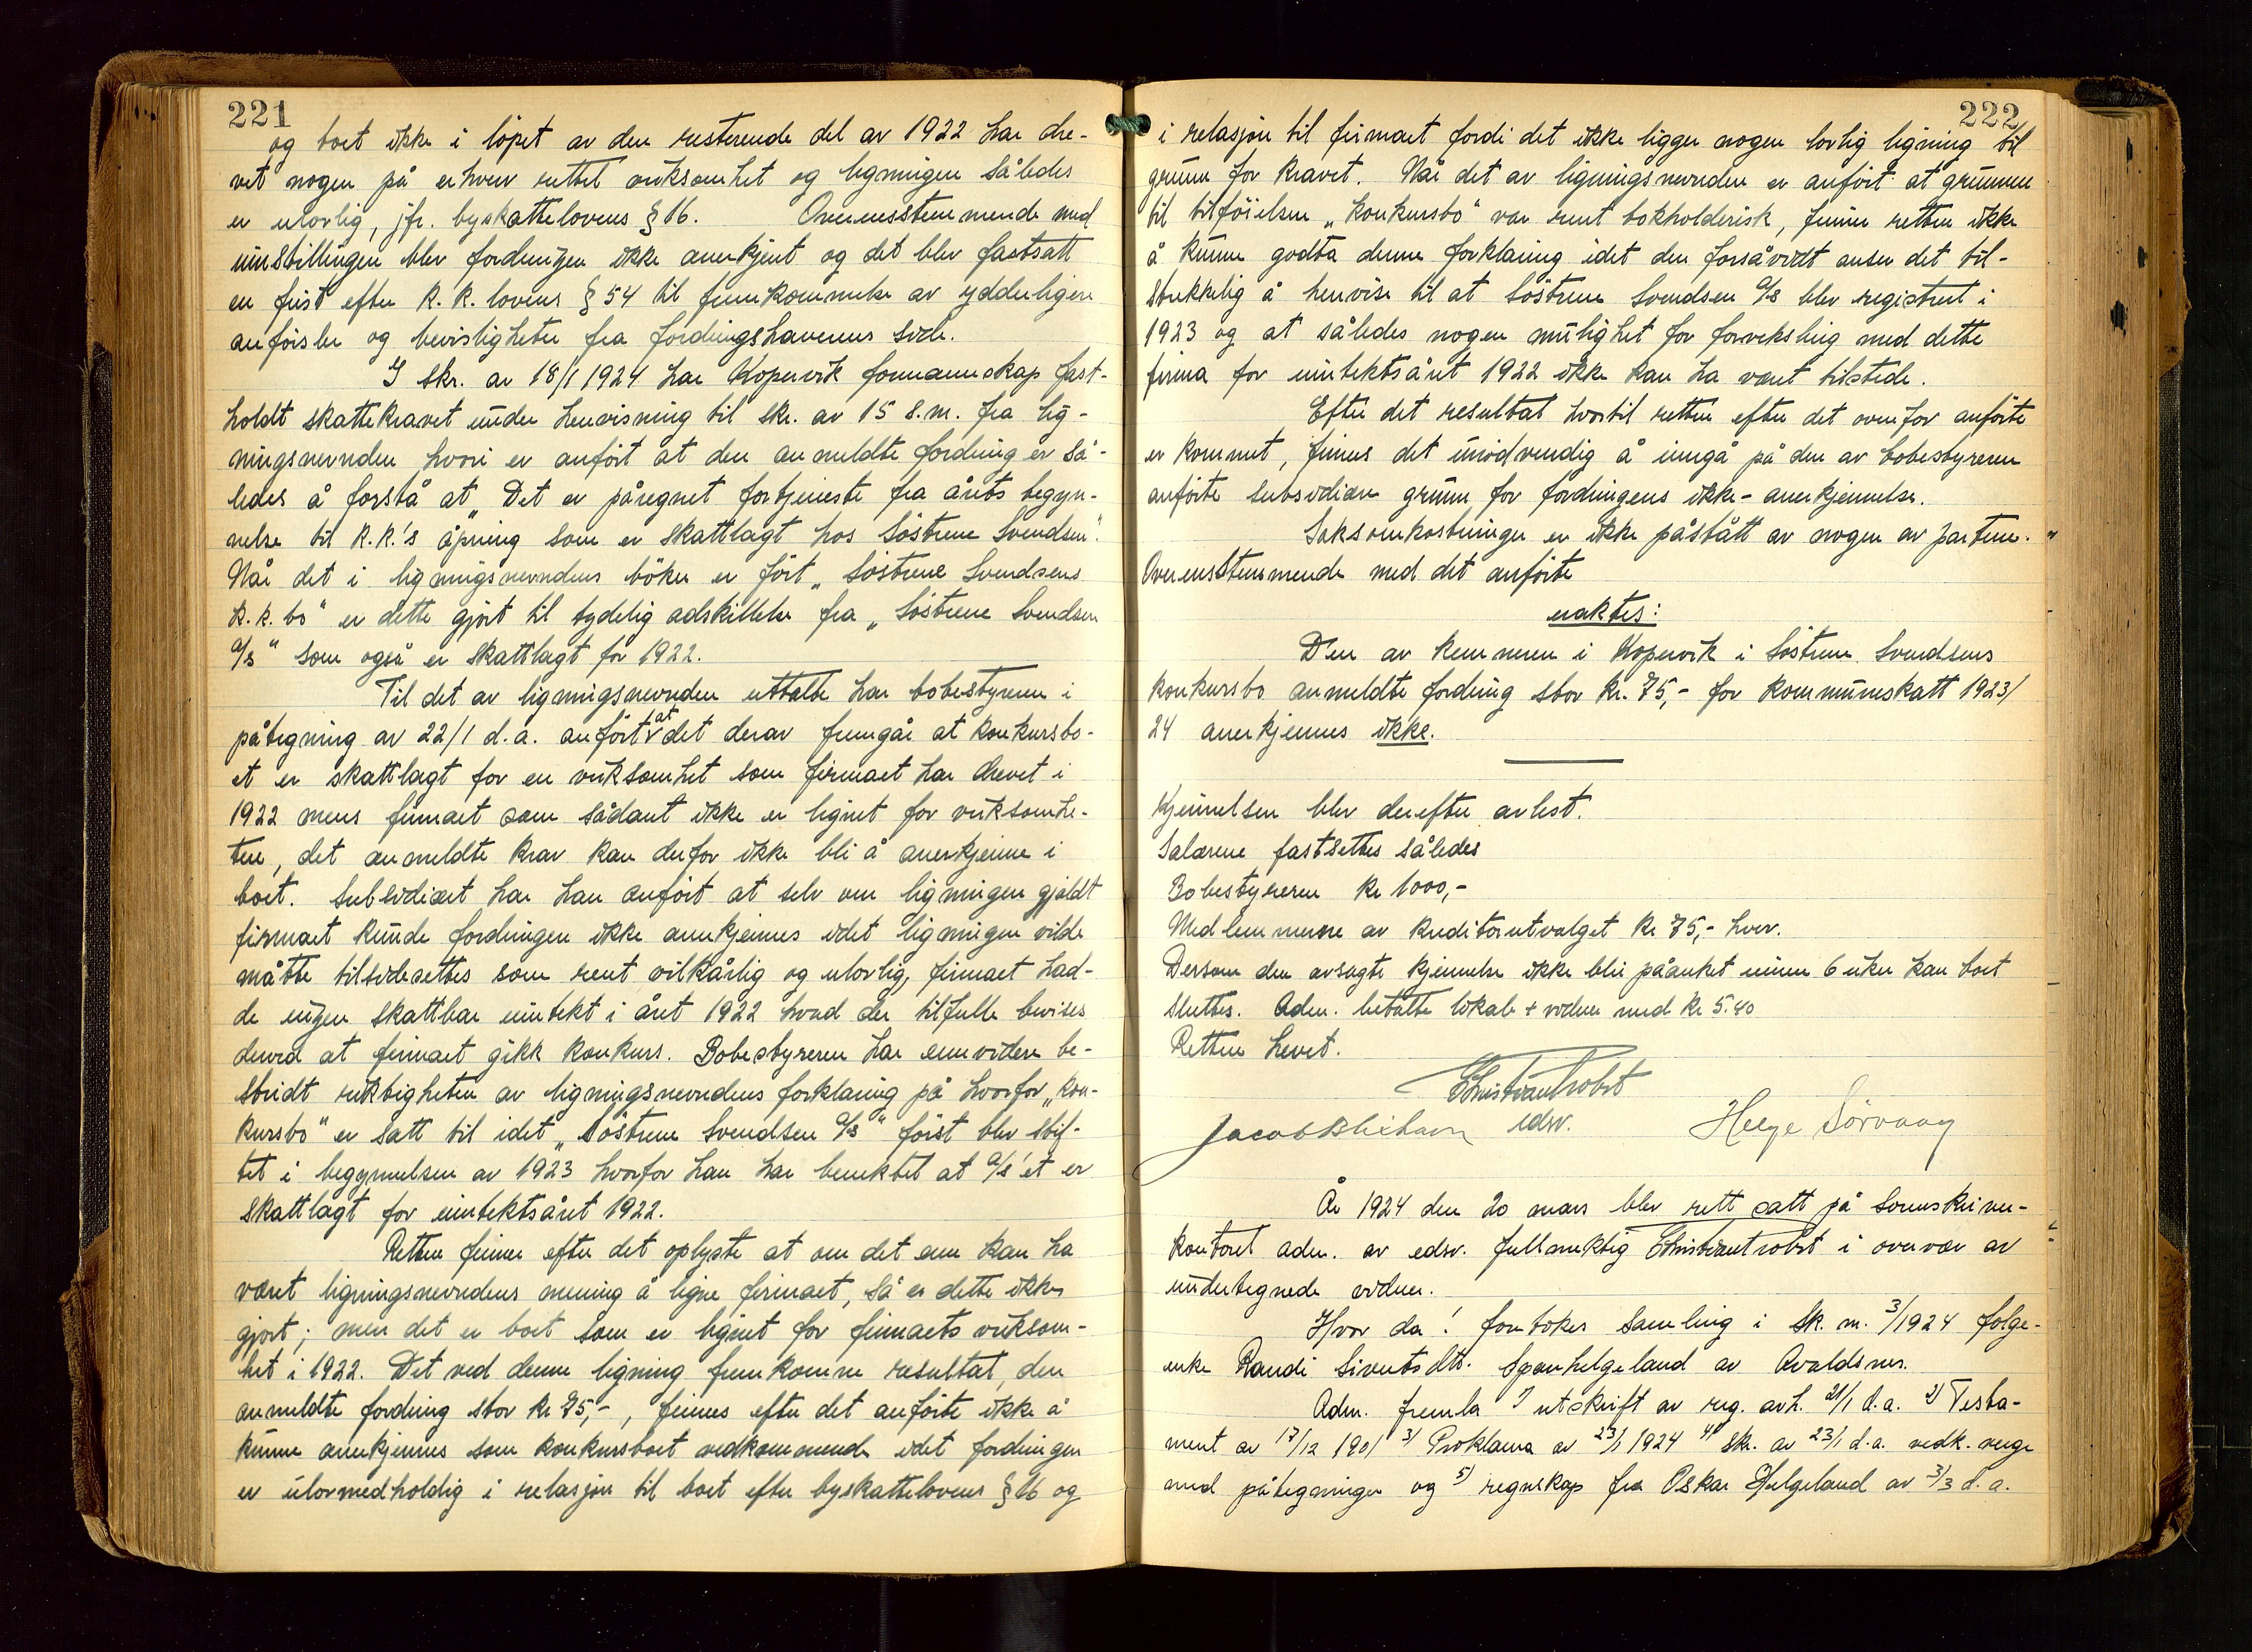 221
og boet ikke i löpet av den resterende del av 1922 har dre-
vet nogen på erhverv rettet virksomhet og ligningen således
er ulovlig, jfr. byskattelovens § 16. Overensstemmende med
innstillingen blev fordringen ikke anerkjent og det blev fastsatt
en frist efter K.K. lovens § 54 til fremkommelse av ydderligere
anförsler og bevisligheter fra fordringshaverens side.
I skr. av 18/1 1924 har Kopervik formannskap fast-
holdt skattekravet under henvisning til skr. av 15 s.m. fra lig-
ningsnevnden hvori er anfört at den anmeldte fordring er så-
ledes å forstå at „Det er påregnet fortjeneste fra årets begyn-
nelse til K.K.'s åpning som er skattlagt hos Söstrene Svendsen".
Når det i ligningsnevndens böker er fört „Söstrene Svendsens
k.k. bo" er dette gjort til tydelig adskillelse fra „Söstrene Svendsen
a/s" som også er skattlagt for 1922.
Til det av ligningsnevnden uttalte har bobestyreren i
påtegning av 22/1 d.a. anfört at det derav fremgår at konkursbo-
et er skattlagt for en virksomhet som firmaet har drevet i
1922 mens firmaet som sådant ikke er lignet for virksomhe-
ten, det anmeldte krav kan derfor ikke bli å anerkjenne i
boet. Subsidiært har han anfört at selv om ligningen gjaldt
firmaet kunde fordringen ikke anerkjennes idet ligningen vilde
måtte tilsidesettes som rent vilkårlig og ulovlig, firmaet had-
de ingen skattbar inntekt i året 1922 hvad der tilfulle bevises
derved at firmaet gikk konkurs. Bobestyreren har ennvidere be-
stridt riktigheten av ligningsnevndens forklaring på hvorfor „kon-
kursbo" er satt til idet „Söstrene Svendsen a/s" först blev stif-
tet i begynnelsen av 1923 hvorfor han har benektet at a/s'et er
skattlagt for inntektsåret 1922.
Retten finner efter det oplyste at om det enn kan ha
været ligningsnevndens mening å ligne firmaet, så er dette ikke
gjort; men det er boet som er lignet for firmaets virksom-
het i 1922. Det ved denne ligning fremkomne resultat, den
anmeldte fordring stor kr 75,-, finnes efter det anförte ikke å
kunne anerkjennes som konkursboet vedkommende idet fordringen
er ulovmedholdig i relasjon til boet efter byskattelovens § 16 og
222
i relasjon til firmaet fordi det ikke ligger nogen lovlig ligning til
grunn for kravet. Når det av ligningsnevnden er anfört at grunnen
til tilföielsen „konkursbo" var rent bokholderisk, finner retten ikke
å kunne godta denne forklaring idet den forsåvidt anser det til-
strekkelig å henvise til at Söstrene Svendsen a/s blev registrert i
1923 og at således nogen mulighet for forveksling med dette
firma for inntektsåret 1922 ikke kan ha været tilstede.
Efter det resultat hvortil retten efter det ovenfor anförte
er kommet, finnes det unödvendig å inngå på den av bobestyreren
anförte subsidiære grunn for fordringens ikke-anerkjennelse.
Saksomkostninger er ikke påstått av nogen av partene.
Overensstemmende med det anförte
eraktes:
Den av kemneren i Kopervik i Söstrene Svendsens
konkursbo anmeldte fordring stor kr. 75,- for kommuneskatt 1923/
24 anerkjennes ikke.
Kjennelsen blev derefter avlest.
Salærene fastsettes således
Bobestyreren kr 1000,-
Medlemmerne av kreditorutvalget kr 75,- hver.
Dersom den avsagte kjennelse ikke blir påanket innen 6 uker kan boet
sluttes. Adm. betalte lokale + vidner med kr 5.40
Retten hevet.
Christian Trobst
edsv.
Helge Sörvaag
År 1924 den 20 mars blev rett satt på sorenskriver-
kontoret adm. av edsv. fullmektig Christian Trobst i overvær av
undertegnede vidner.
Hvor da! foretokes samling i sk. m. 3/1924 folge-
enke Randi Sivertsdtr. Spanhelgeland av Avaldsnes.
Adm. fremla 1) utskrift av reg. avh. 21/1 d.a. 2) Testa-
ment av 17/12 1901 3) Proklama av 23/1 1924 4) skr. av 23/1 d.a. vedk. verge
med påtegninger og 5) regnskap fra Oskar Helgeland av 3/3 d.a.